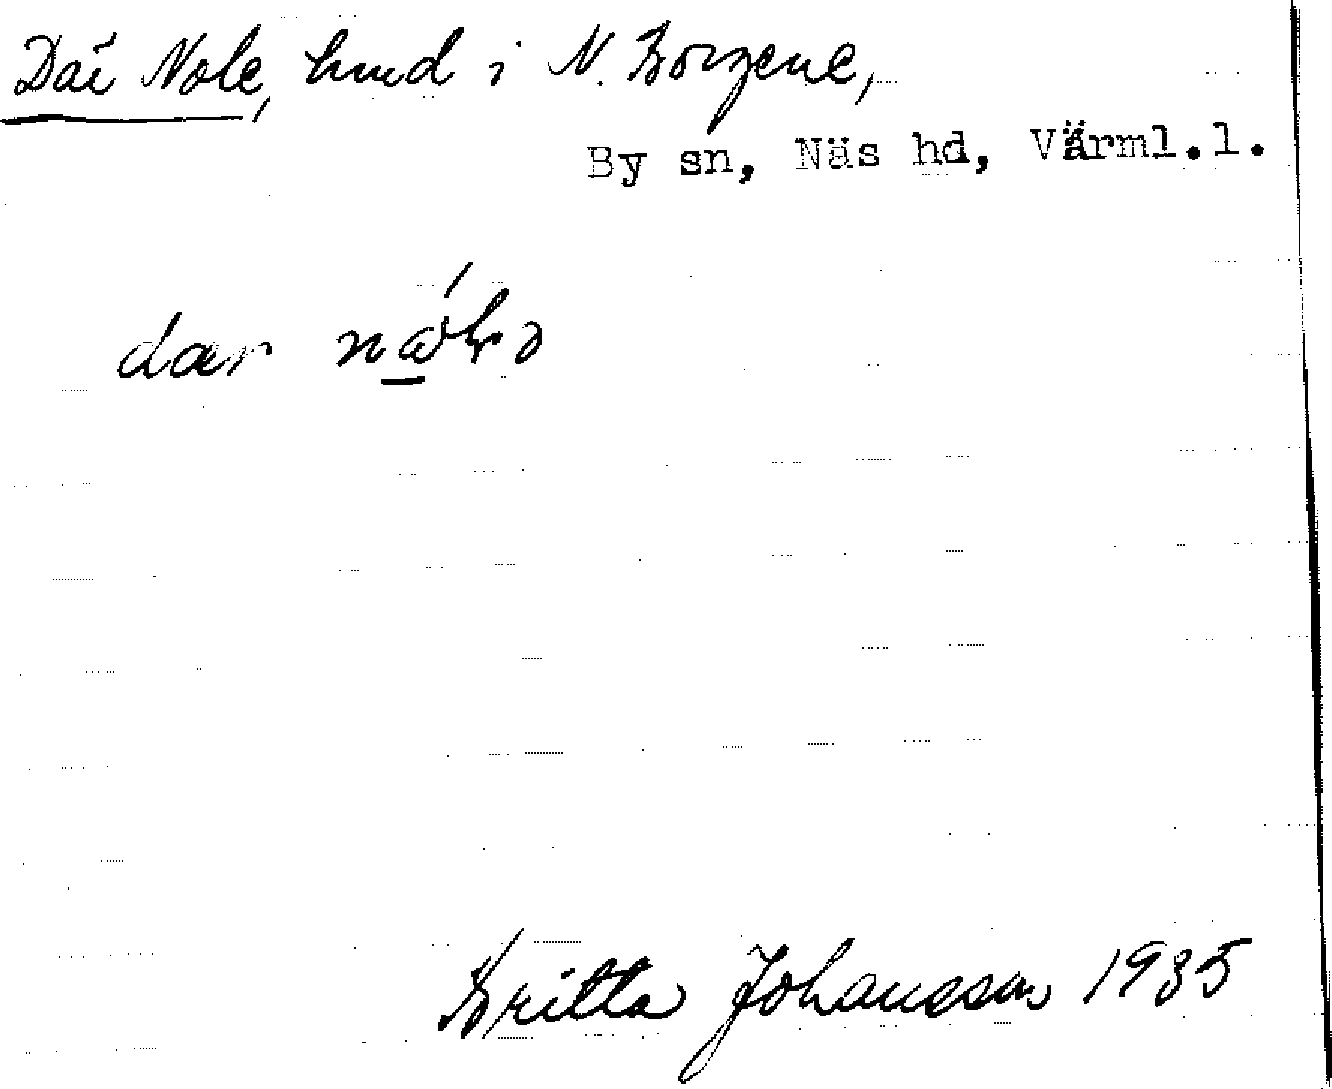 Där Nole, hund i N. Borgene,
By sn, Näs hd, Värml.l.
dær
Britta Johansson 1935